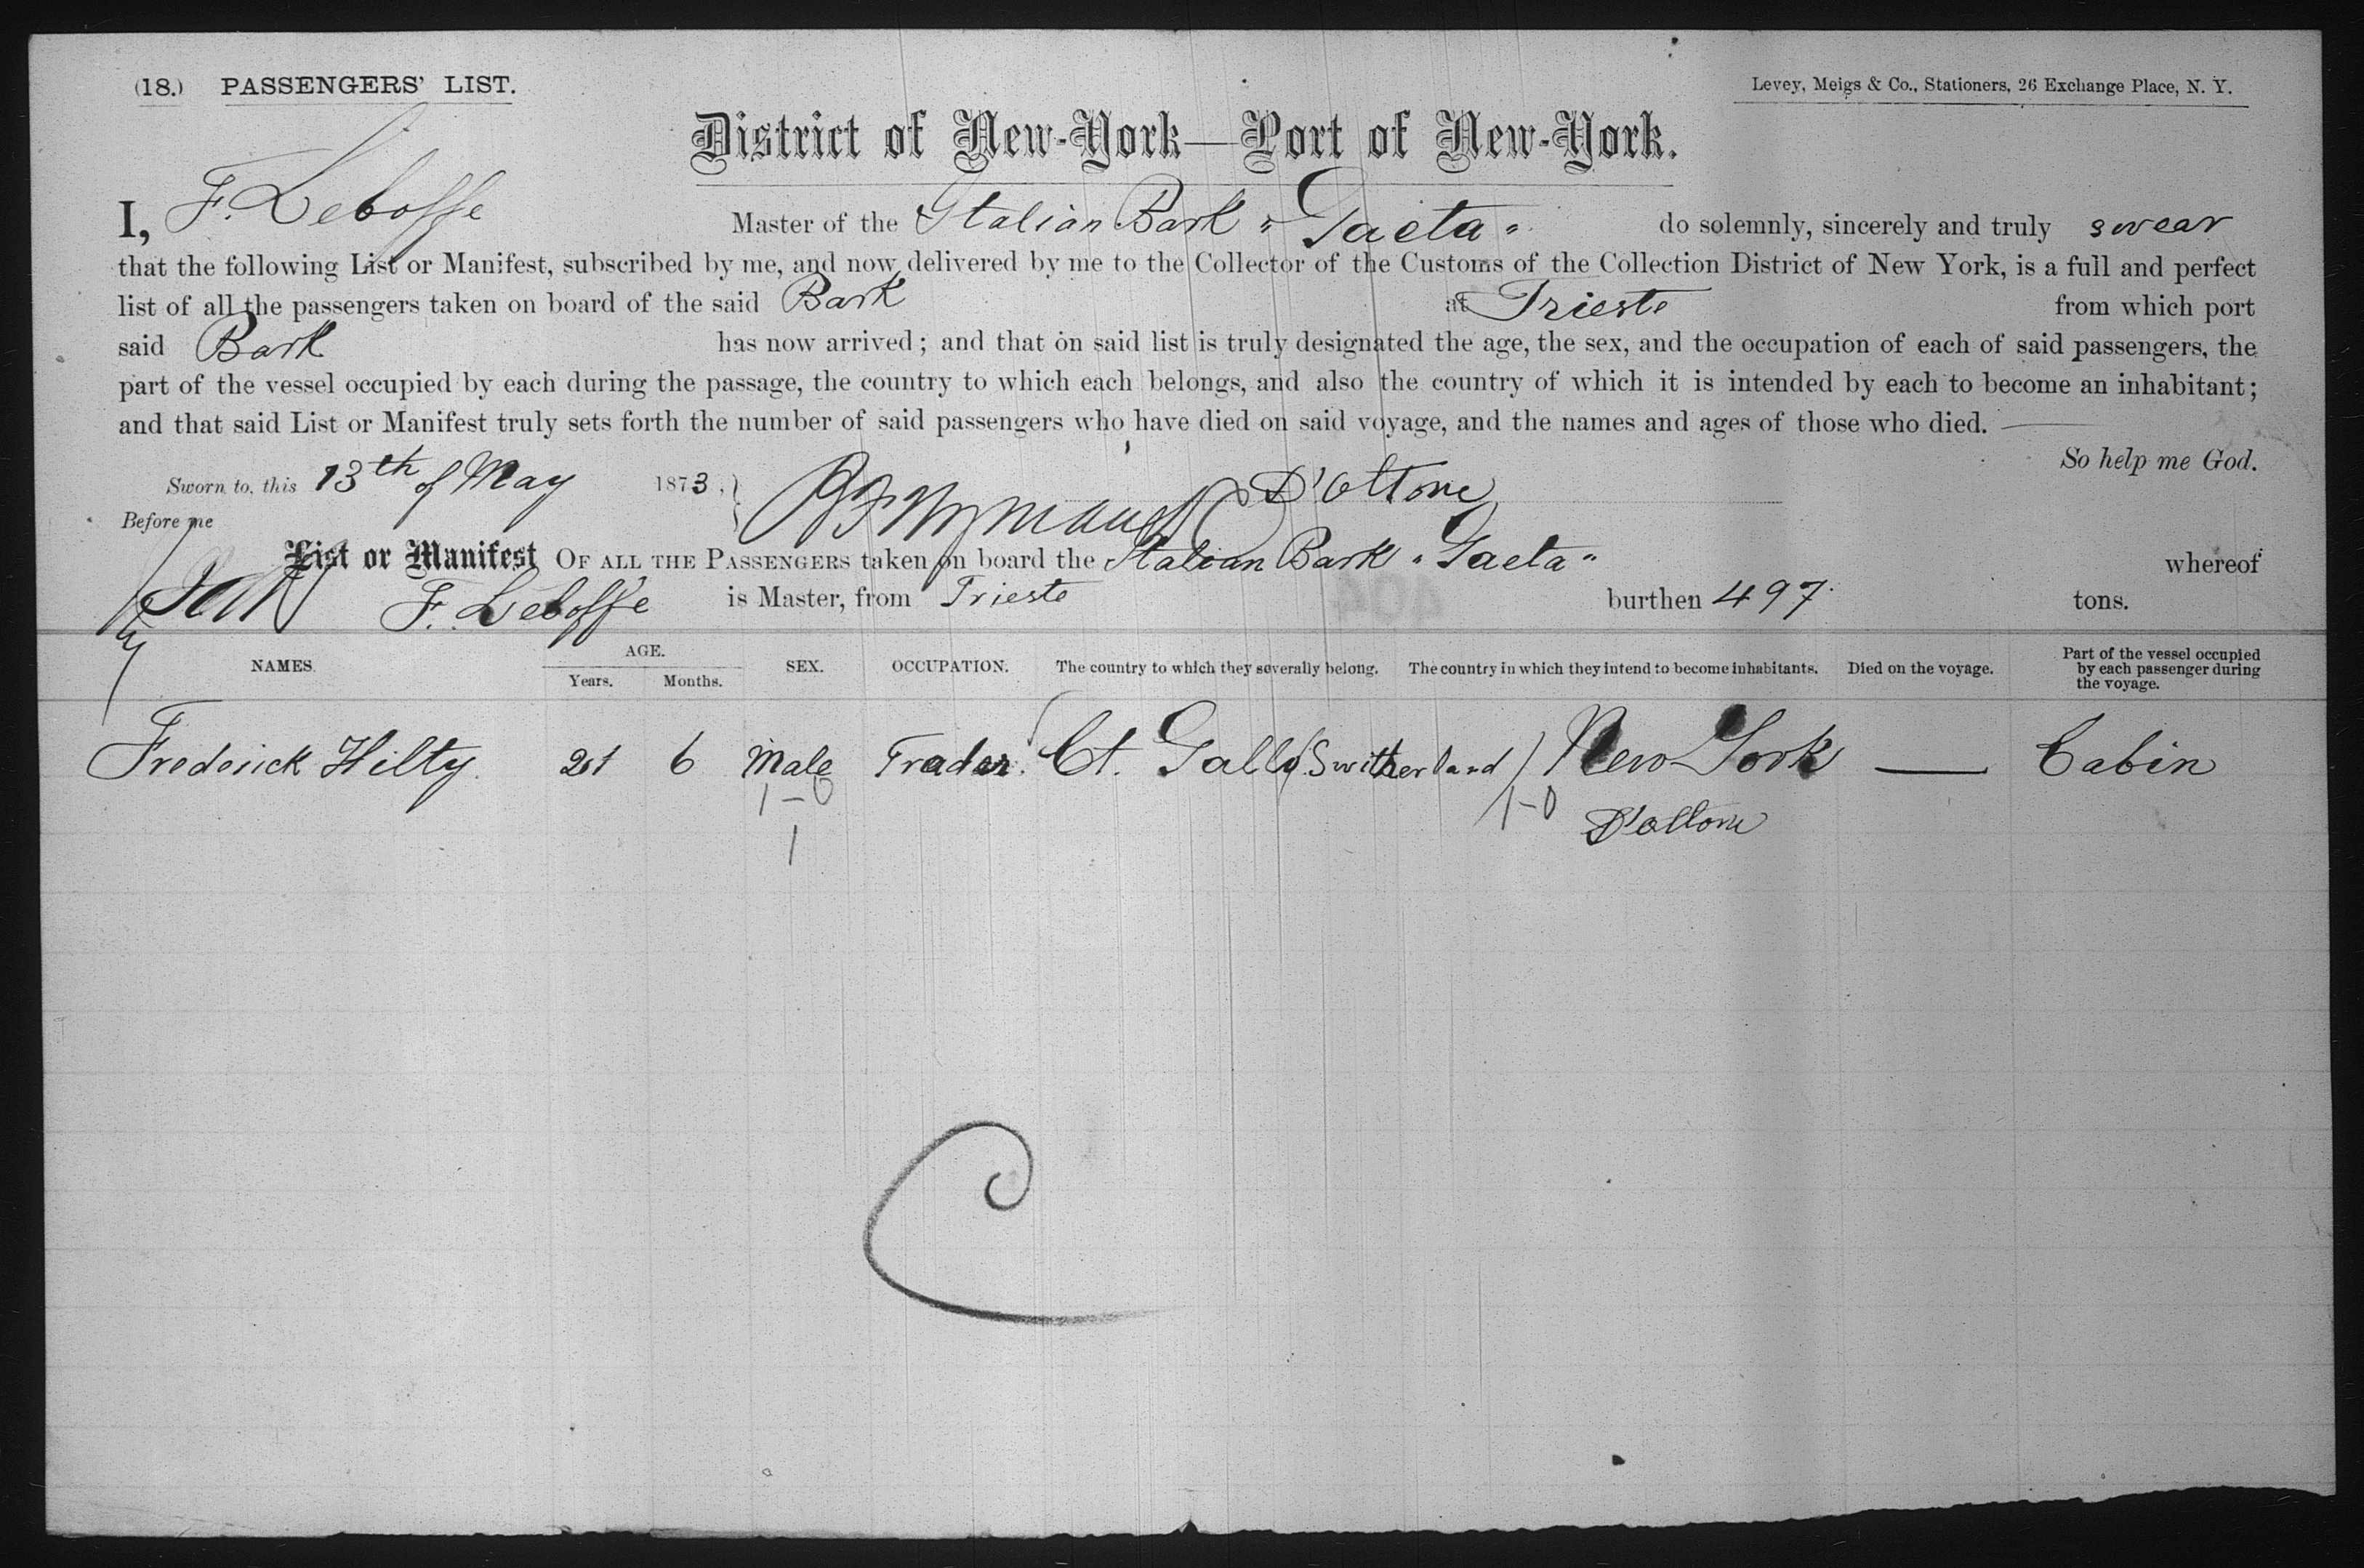 (18.) PASSENGERS' LIST.
Levey, Meigs & Co., Stationers, 26 Exchange Place, N. Y.
District of New-York—Port of New-York.
I, F. Leboffe Master of the Italian Bark "Gaeta" do solemnly, sincerely and truly swear
that the following List or Manifest, subscribed by me, and now delivered by me to the Collector of the Customs of the Collection District of New York, is a full and perfect
list of all the passengers taken on board of the said Bark at Trieste from which port
said Bark has now arrived; and that on said list is truly designated the age, the sex, and the occupation of each of said passengers, the
part of the vessel occupied by each during the passage, the country to which each belongs, and also the country of which it is intended by each to become an inhabitant;
and that said List or Manifest truly sets forth the number of said passengers who have died on said voyage, and the names and ages of those who died.
So help me God.
Sworn to, this 13th of May 1873,
Before me
List or Manifest OF ALL THE PASSENGERS taken on board the Italian Bark "Gaeta" whereof
F. Leboffe is Master, from Trieste burthen 497 tons.
NAMES. AGE. Years. Months. SEX. OCCUPATION. The country to which they severally belong. The country in which they intend to become inhabitants. Died on the voyage. Part of the vessel occupied by each passenger during the voyage.
Frederick Hilty 21 6 Male Trader Ct. Gall (Switherland) New York — Cabin
1-0 1-0
1
C